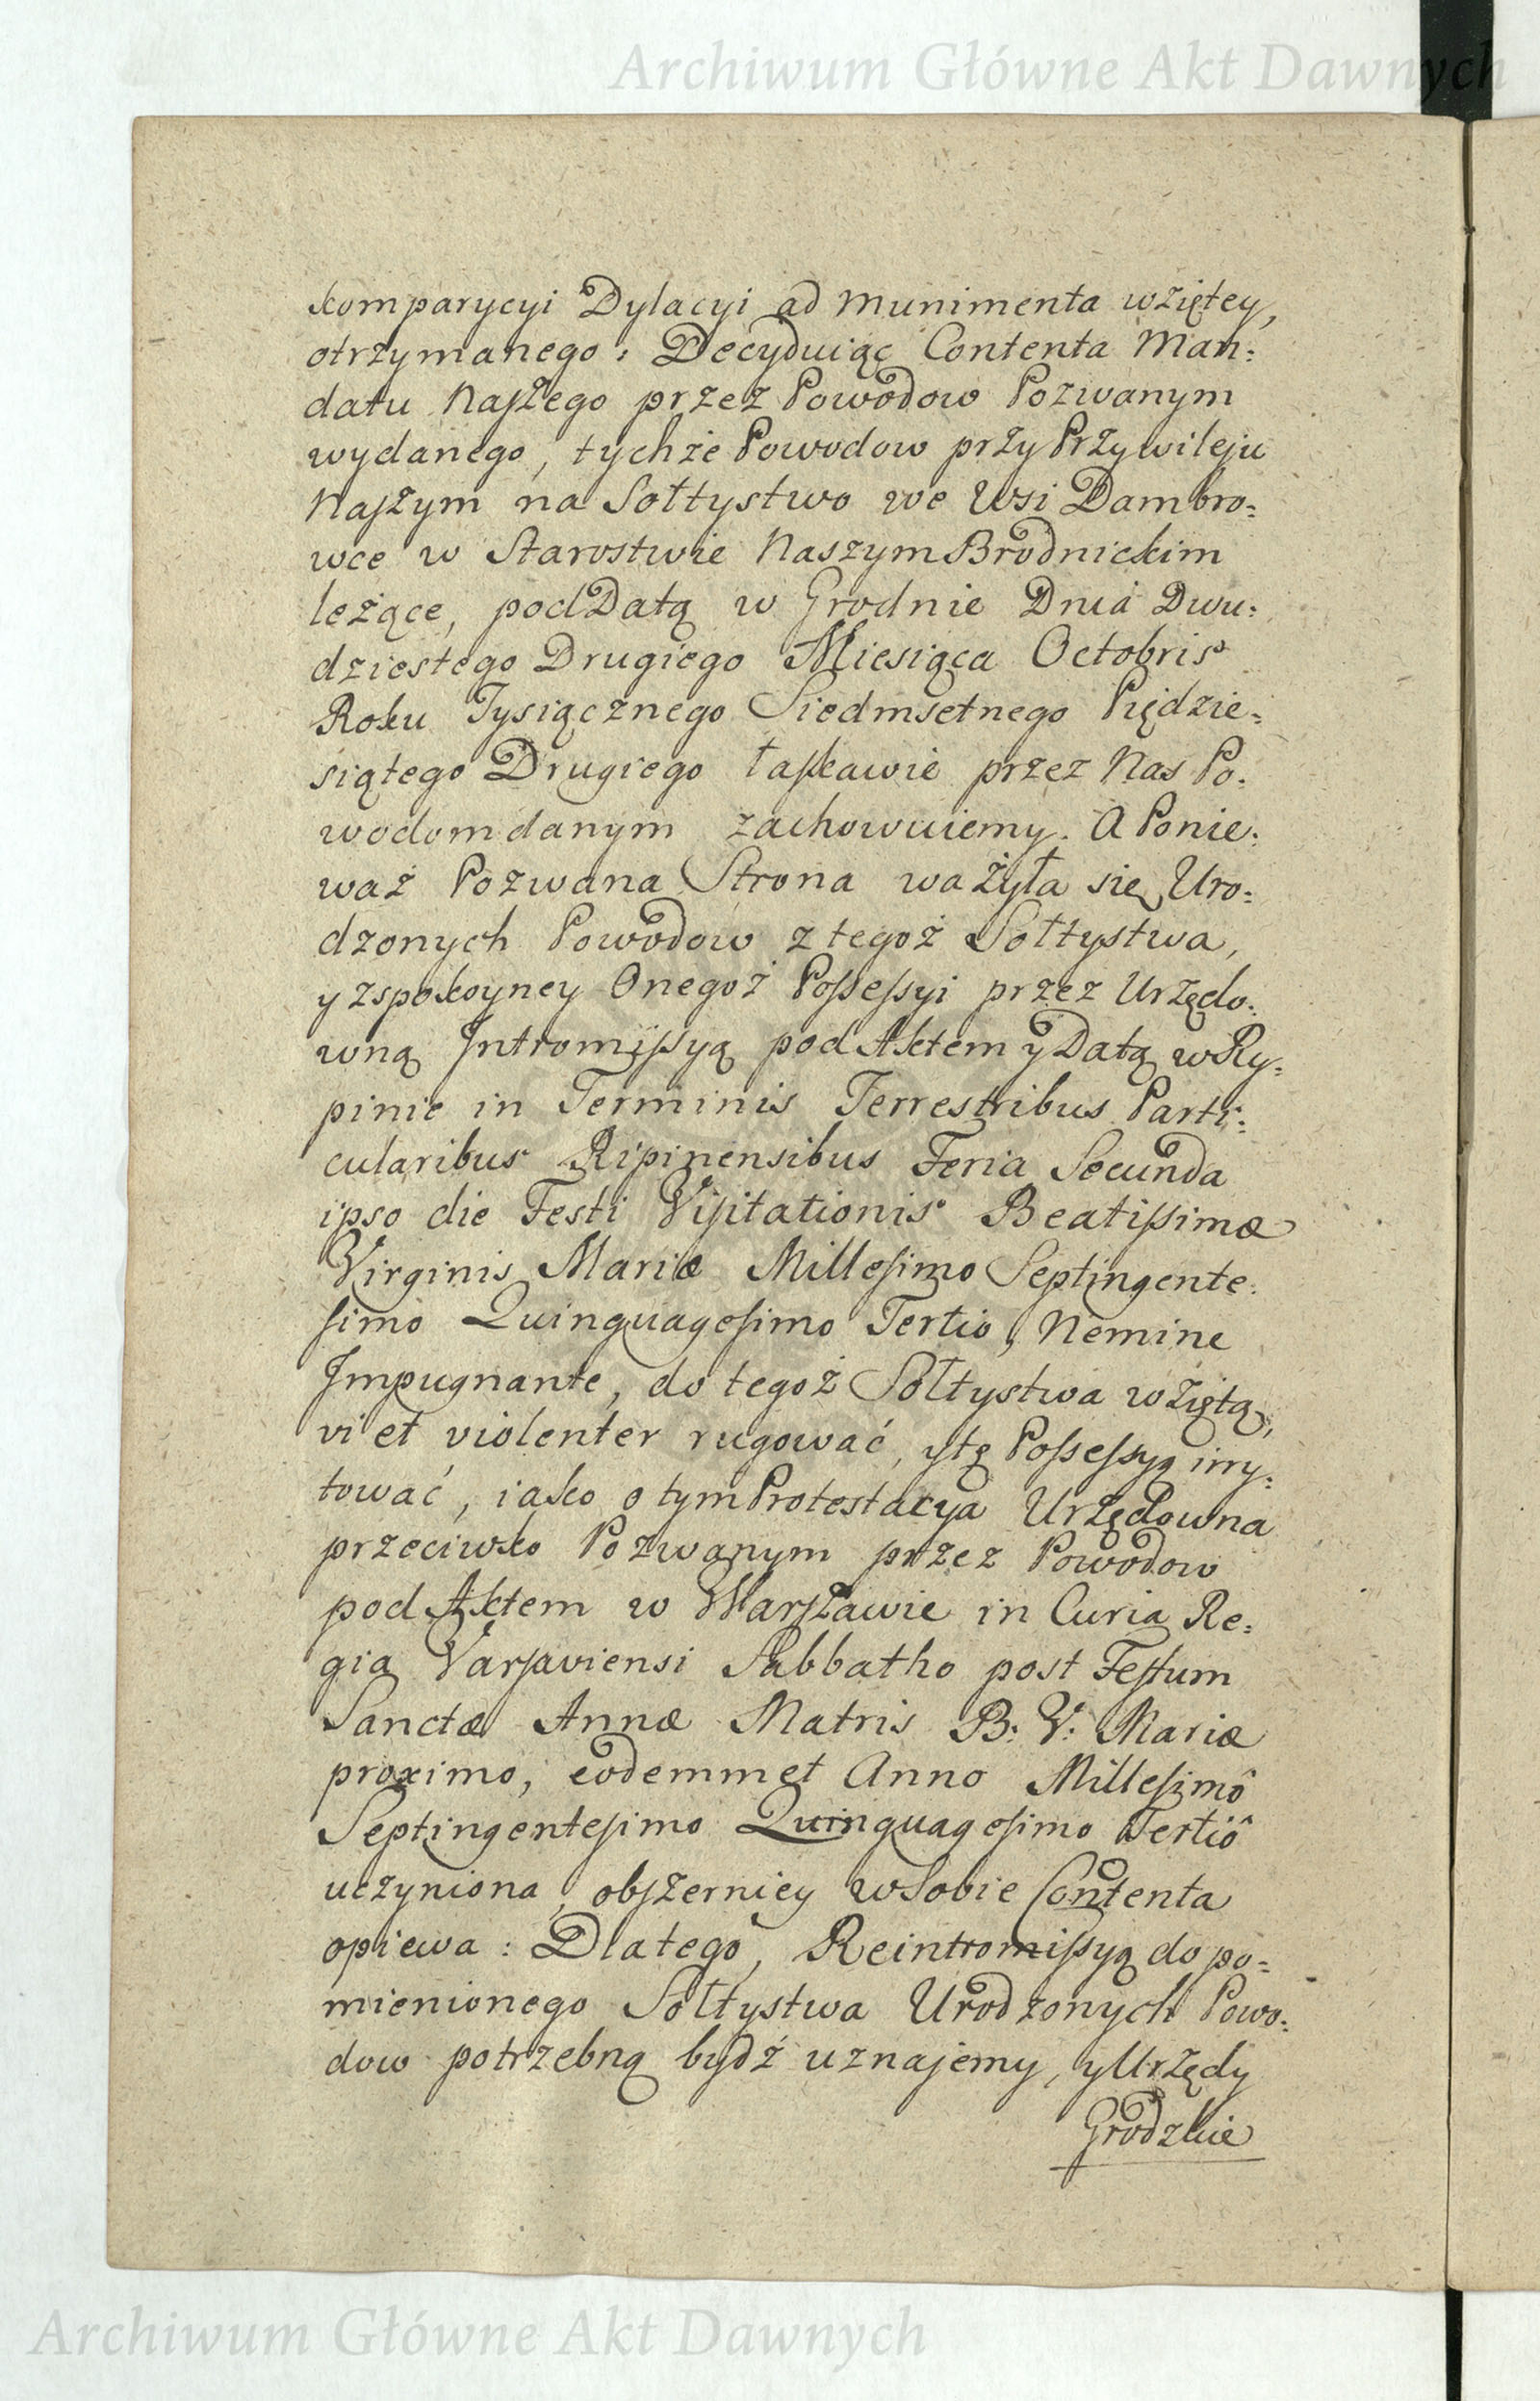 Archiwum Główne Akt Dawnych
komparycyi Dylacyi ad munimenta wziętey,
otrzymanego: Decyduiąc Contenta Man:
datu Naſzego przez Powodow Pozwanym
wydanego, tychże Powodow przy Przywileju
Naſzym na Sołtystwo we Wsi Dambro:
wce w Starostwie Naszym Brodnickim
leżące, pod Datą w Grodnie Dnia Dwu:
dziestego Drugiego Miesiąca Octobris
Roku Tysiącznego Siedmsetnego Piędzie:
siątego Drugiego łaſkawie przez Nas Po:
wodom danym zachowuiemy. A Ponie:
waż Pozwana Strona ważyła się Uro:
dzonych Powodow z tegoż Sołtystwa,
y z spokoyney Onegoż Poſseſsyi przez Urzędo:
wną Intromiſsyą pod Aktem y Datą w Ry:
pinie in Terminis Terrestribus Parti:
cularibus Ripinensibus Feria Secunda
ipso die Festi Viſitationis Beatiſsimæ
Virginis Mariæ Milleſimo Septingente:
ſimo Quinquageſimo Tertio, Nemine
Impugnante, do tegoż Sołtystwa wziętą,
vi et violenter rugować, y tę Poſseſsyą irry:
tować, iako o tym Protestacya Urzędowna
przeciwko Pozwanym przez Powodow
pod Aktem w Warſzawie in Curia Re:
gia Varſaviensi Sabbatho post Feſtum
Sanctæ Annæ Matris B: V: Mariæ
proximo, eodemmet Anno Milleſimô
Septingenteſimo Quinquageſimo Tertiô
uczyniona, obſzerniey w Sobie Contenta
opiewa: Dlatego, Reintromiſsyą do po:
mienionego Sołtystwa Urodzonych Powo:
dow potrzebną bydź uznajemy, y Urzędy
Grodzkie
Archiwum Główne Akt Dawnych